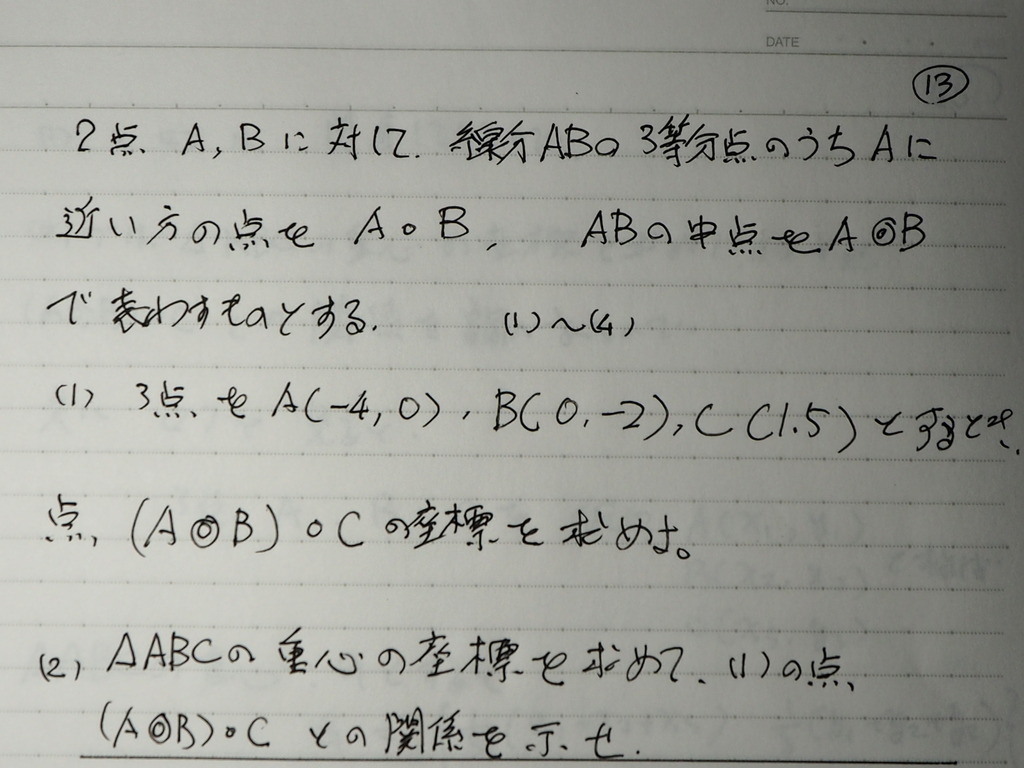 NO.
DATE
⑬
2点 A, B に対して. 線分ABの 3等分点のうち Aに
近い方の点を A∘B, ABの中点を A◎B
で表わすものとする. (1)～(4)
(1) 3点を A(-4, 0), B(0, -2), C(1.5) とするとき.
点, (A◎B)∘C の座標を求めよ。
(2) △ABCの重心の座標を求めて、(1)の点
(A◎B)∘C との関係を示せ.